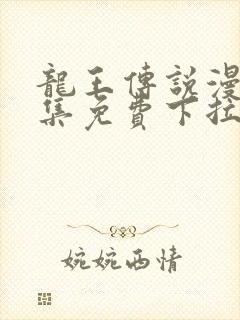 龍王傳說漫
集免費下拉
婉婉西情